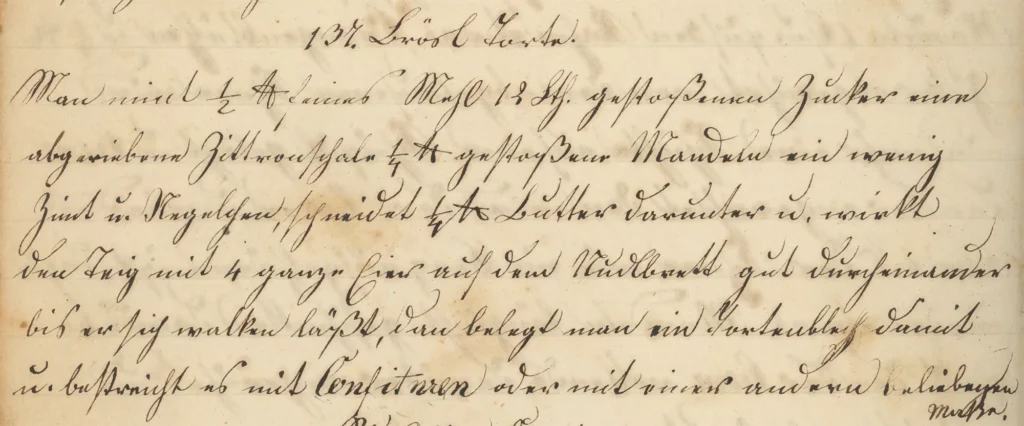 137. Brösl Torte.
Man nimt 1/2 ℔ feines Mehl 12 Lth. gestoßenen Zucker eine
abgeriebene Zittronschale 1/4 ℔ gestoßene Mandeln ein wenig
Zimt u. Negelchen, schneidet 1/4 ℔ Butter darunter u. wirkt
den Teig mit 4 ganze Eier auf dem Nudlbrett gut durcheinander
bis er sich walken läßt, dan belegt man ein Tortenblech damit
u. bestreicht es mit Confituren oder mit einer andern beliebigen
Maße.